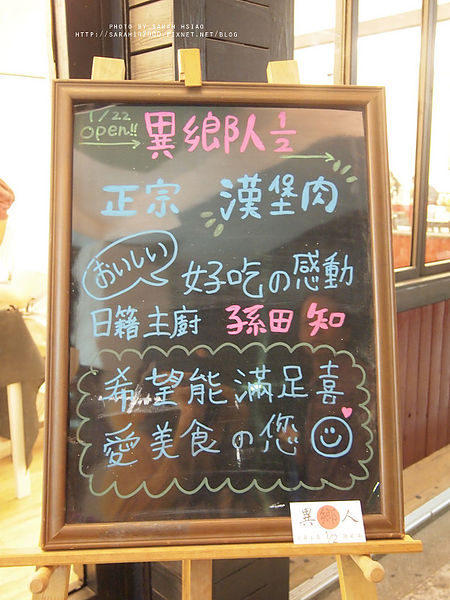 PHOTO BY SARAH HSIAO
HTTP://SARAH192000.PIXNET.NET/BLOG
1/22
open!!
異鄉人½
正宗 漢堡肉
おいしい
好吃の感動
日籍主廚 孫田知
希望能滿足喜
愛美食の您
異鄉人
1/2